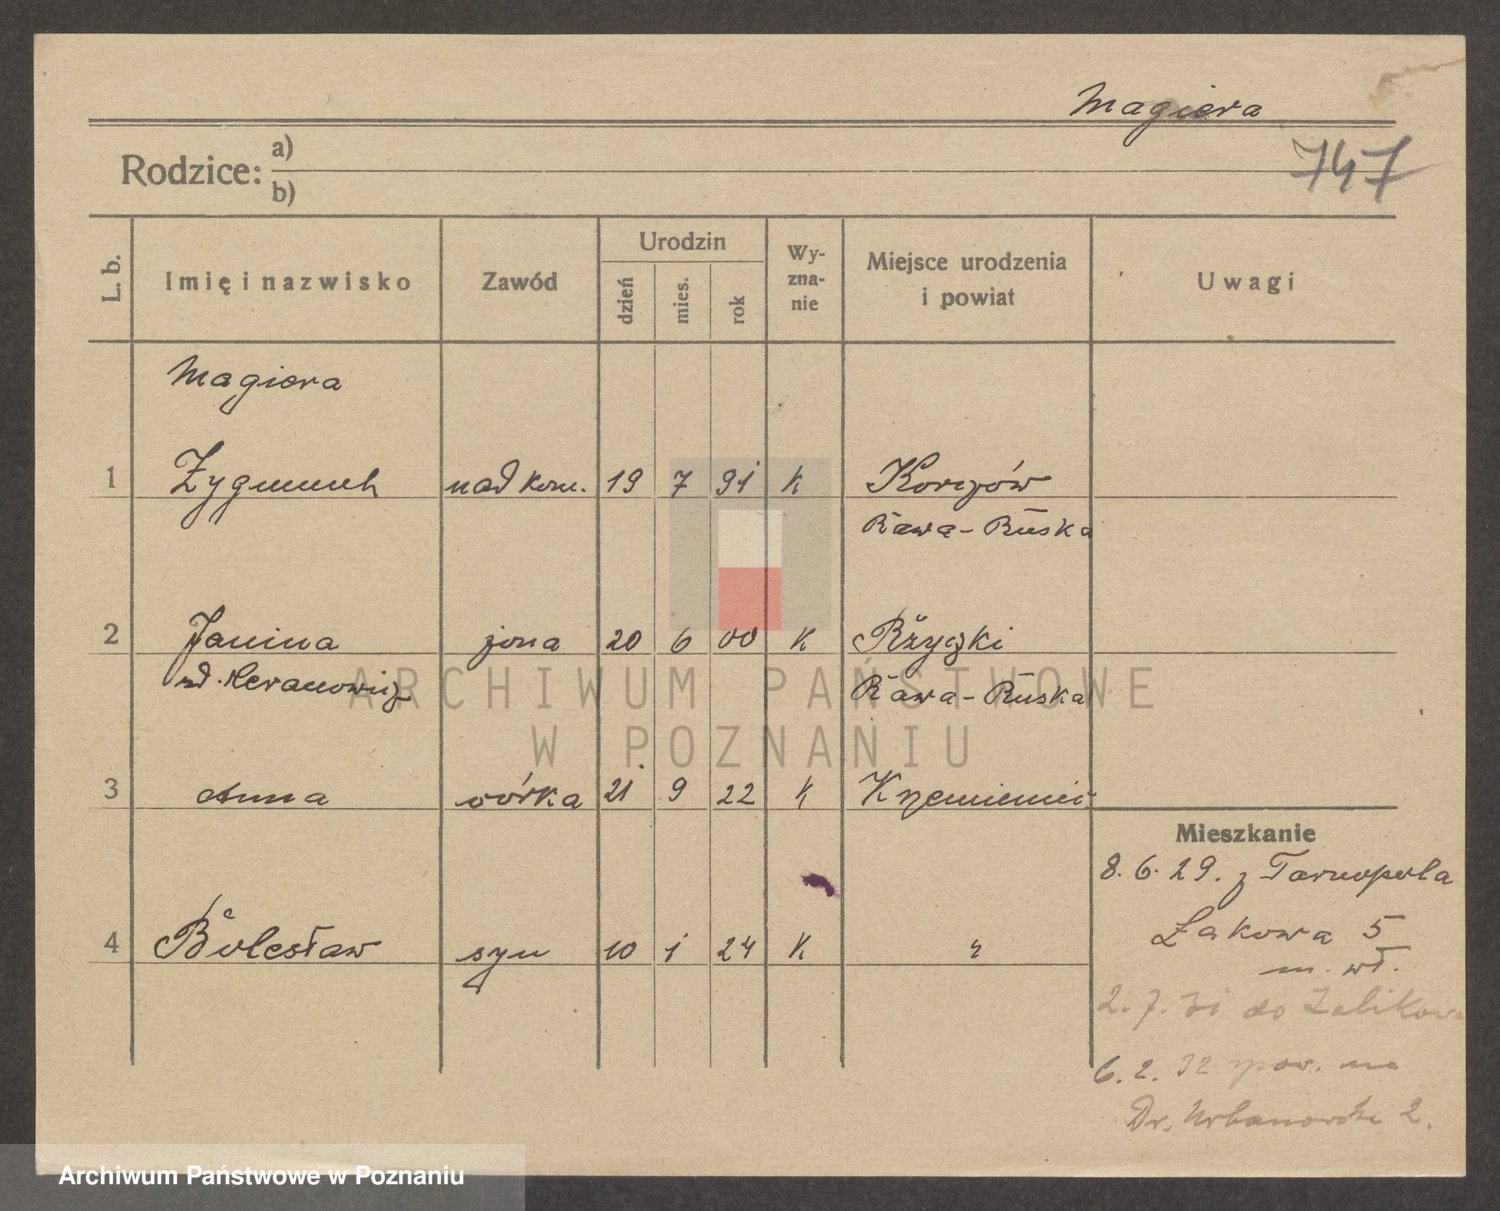 Magiera
747
Rodzice: a)
b)
L. b. Imię i nazwisko Zawód Urodzin dzień mies. rok Wy-zna-nie Miejsce urodzenia i powiat Uwagi
Magiera
1 Zygmunt nadkom. 19 7 91 k
Rawa-Ruska
2 Janina żona 20 6 00 k Rzyczki
Rawa-Ruska
ARCHIWUM PAŃSTWOWE
W POZNANIU
3 Anna córka 21 9 22 k Krzemieniec
Mieszkanie
8. 6. 29. z Tarnopola
4 Bolesław syn 10 1 24 k "
Łąkowa 5
m. wł.
2. 7. do Żabikowa
6. 2. 32 pow. na
Dr. 2.
Archiwum Państwowe w Poznaniu